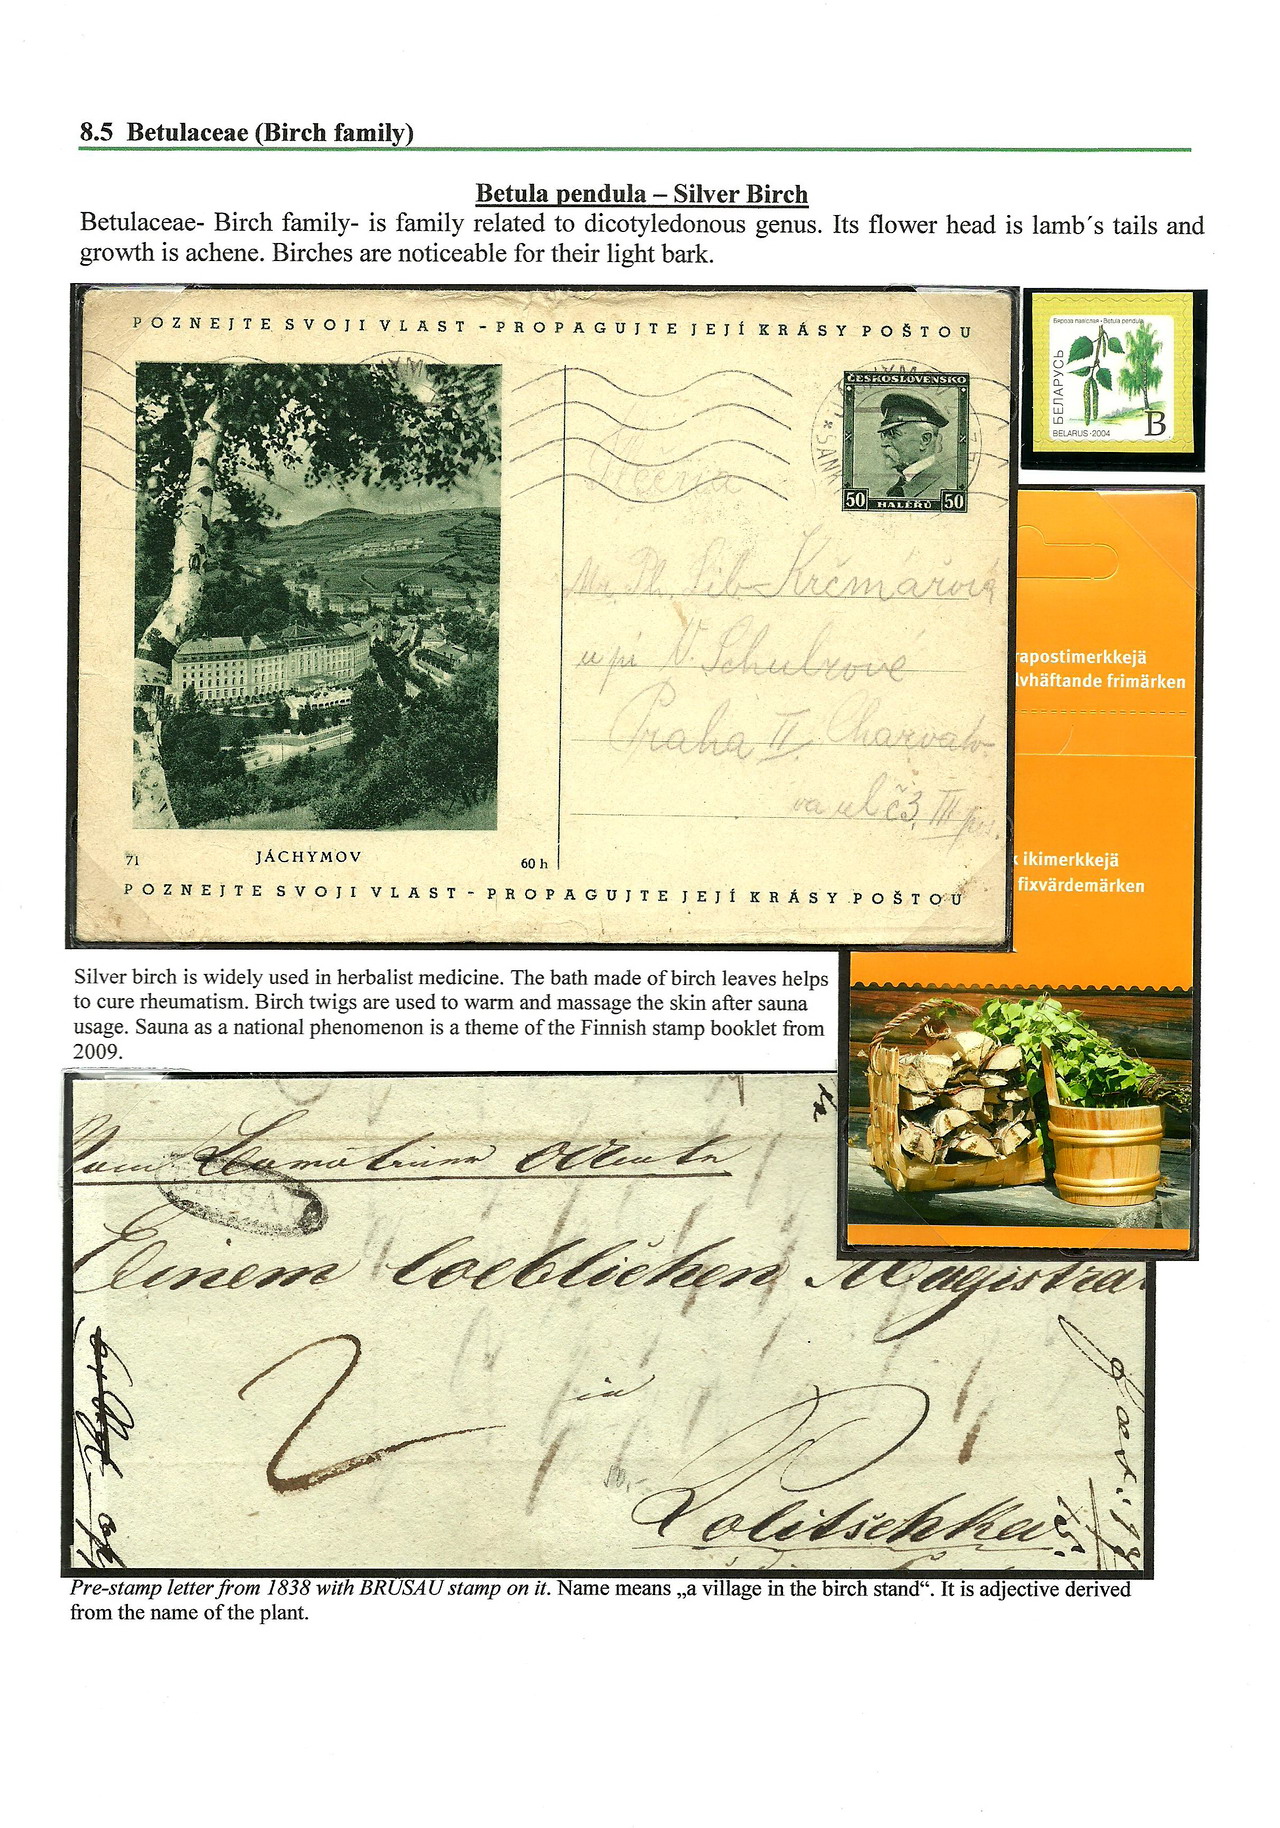 8.5 Betulaceae (Birch family)
Betula pendula – Silver Birch
Betulaceae- Birch family- is family related to dicotyledonous genus. Its flower head is lamb´s tails and
growth is achene. Birches are noticeable for their light bark.
POZNEJTE SVOJI VLAST - PROPAGUJTE JEJÍ KRÁSY POŠTOU
ČESKOSLOVENSKO
50 HALÉŘŮ 50
Slečna
Mr. Ph. Lib. Krčmářová
u pí V. Schulzové
Praha II. Charváto-
va ul č3. III pos.
71 JÁCHYMOV 60 h
POZNEJTE SVOJI VLAST - PROPAGUJTE JEJÍ KRÁSY POŠTOU
Бяроза павіслая • Betula pendula
БЕЛАРУСЬ
BELARUS • 2004
B
rapostimerkkejä
lvhäftande frimärken
ikimerkkejä
fixvärdemärken
Silver birch is widely used in herbalist medicine. The bath made of birch leaves helps
to cure rheumatism. Birch twigs are used to warm and massage the skin after sauna
usage. Sauna as a national phenomenon is a theme of the Finnish stamp booklet from
2009.
Einem loeblichen Magistra
2
in
Politschka
Pre-stamp letter from 1838 with BRUSAU stamp on it. Name means „a village in the birch stand“. It is adjective derived
from the name of the plant.